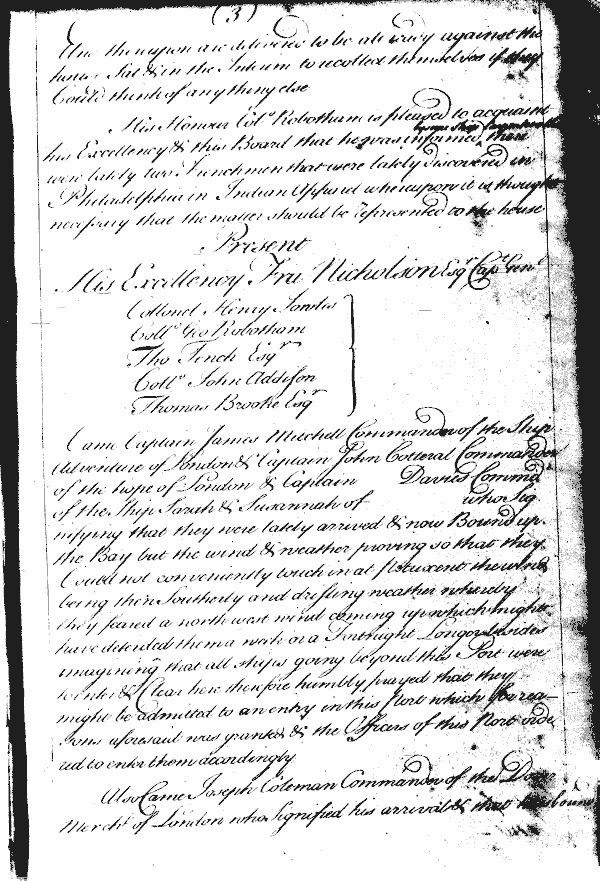 (3)
thereupon are delivered to be ready against the
house Sat & in the Interim to recollect themselves if they
Could think of any thing else
His Honour Col.º Robotham is pleased to acquaint
his Excellency & this Board that he was informed there
were lately two Frenchmen that were lately discovered in
Philadelphia in Indian Apparel whereupon it is thought
necessary that the matter should be represented to the house
Present
His Excellency Fra Nicholson Esqr Capt Genl
Collonel Henry
Collº Geo Robotham
Tho Tench Esqr
Collº John Addison
Thomas Brooke Esqr
Came Captain James Mitchell Commander of the Ship
Adventure of London & Captain John Cotteral Commander
of the hope of London & Captain Davies Commdr
of the Ship Sarah & Susannah of who Sig
nifying that they were lately arrived & now Bound up
the Bay but the wind & weather proving so that they
Could not conveniently touch in at Potuxent the wind
being then Southerly and drifling weather whereby
they feared a north west wind coming up which might
have detained them a week or a Fortnight Longer besides
imagining that all ships going beyond this Port were
to enter & Clear here therefore humbly prayed that they
might be admitted to an entry in this Port which for rea-
sons aforesaid was granted & the Officers of this Port orde
red to enter them accordingly
Also Came Joseph Coleman Commander of the
Merchᵗ of London who Signified his arrival & that bound